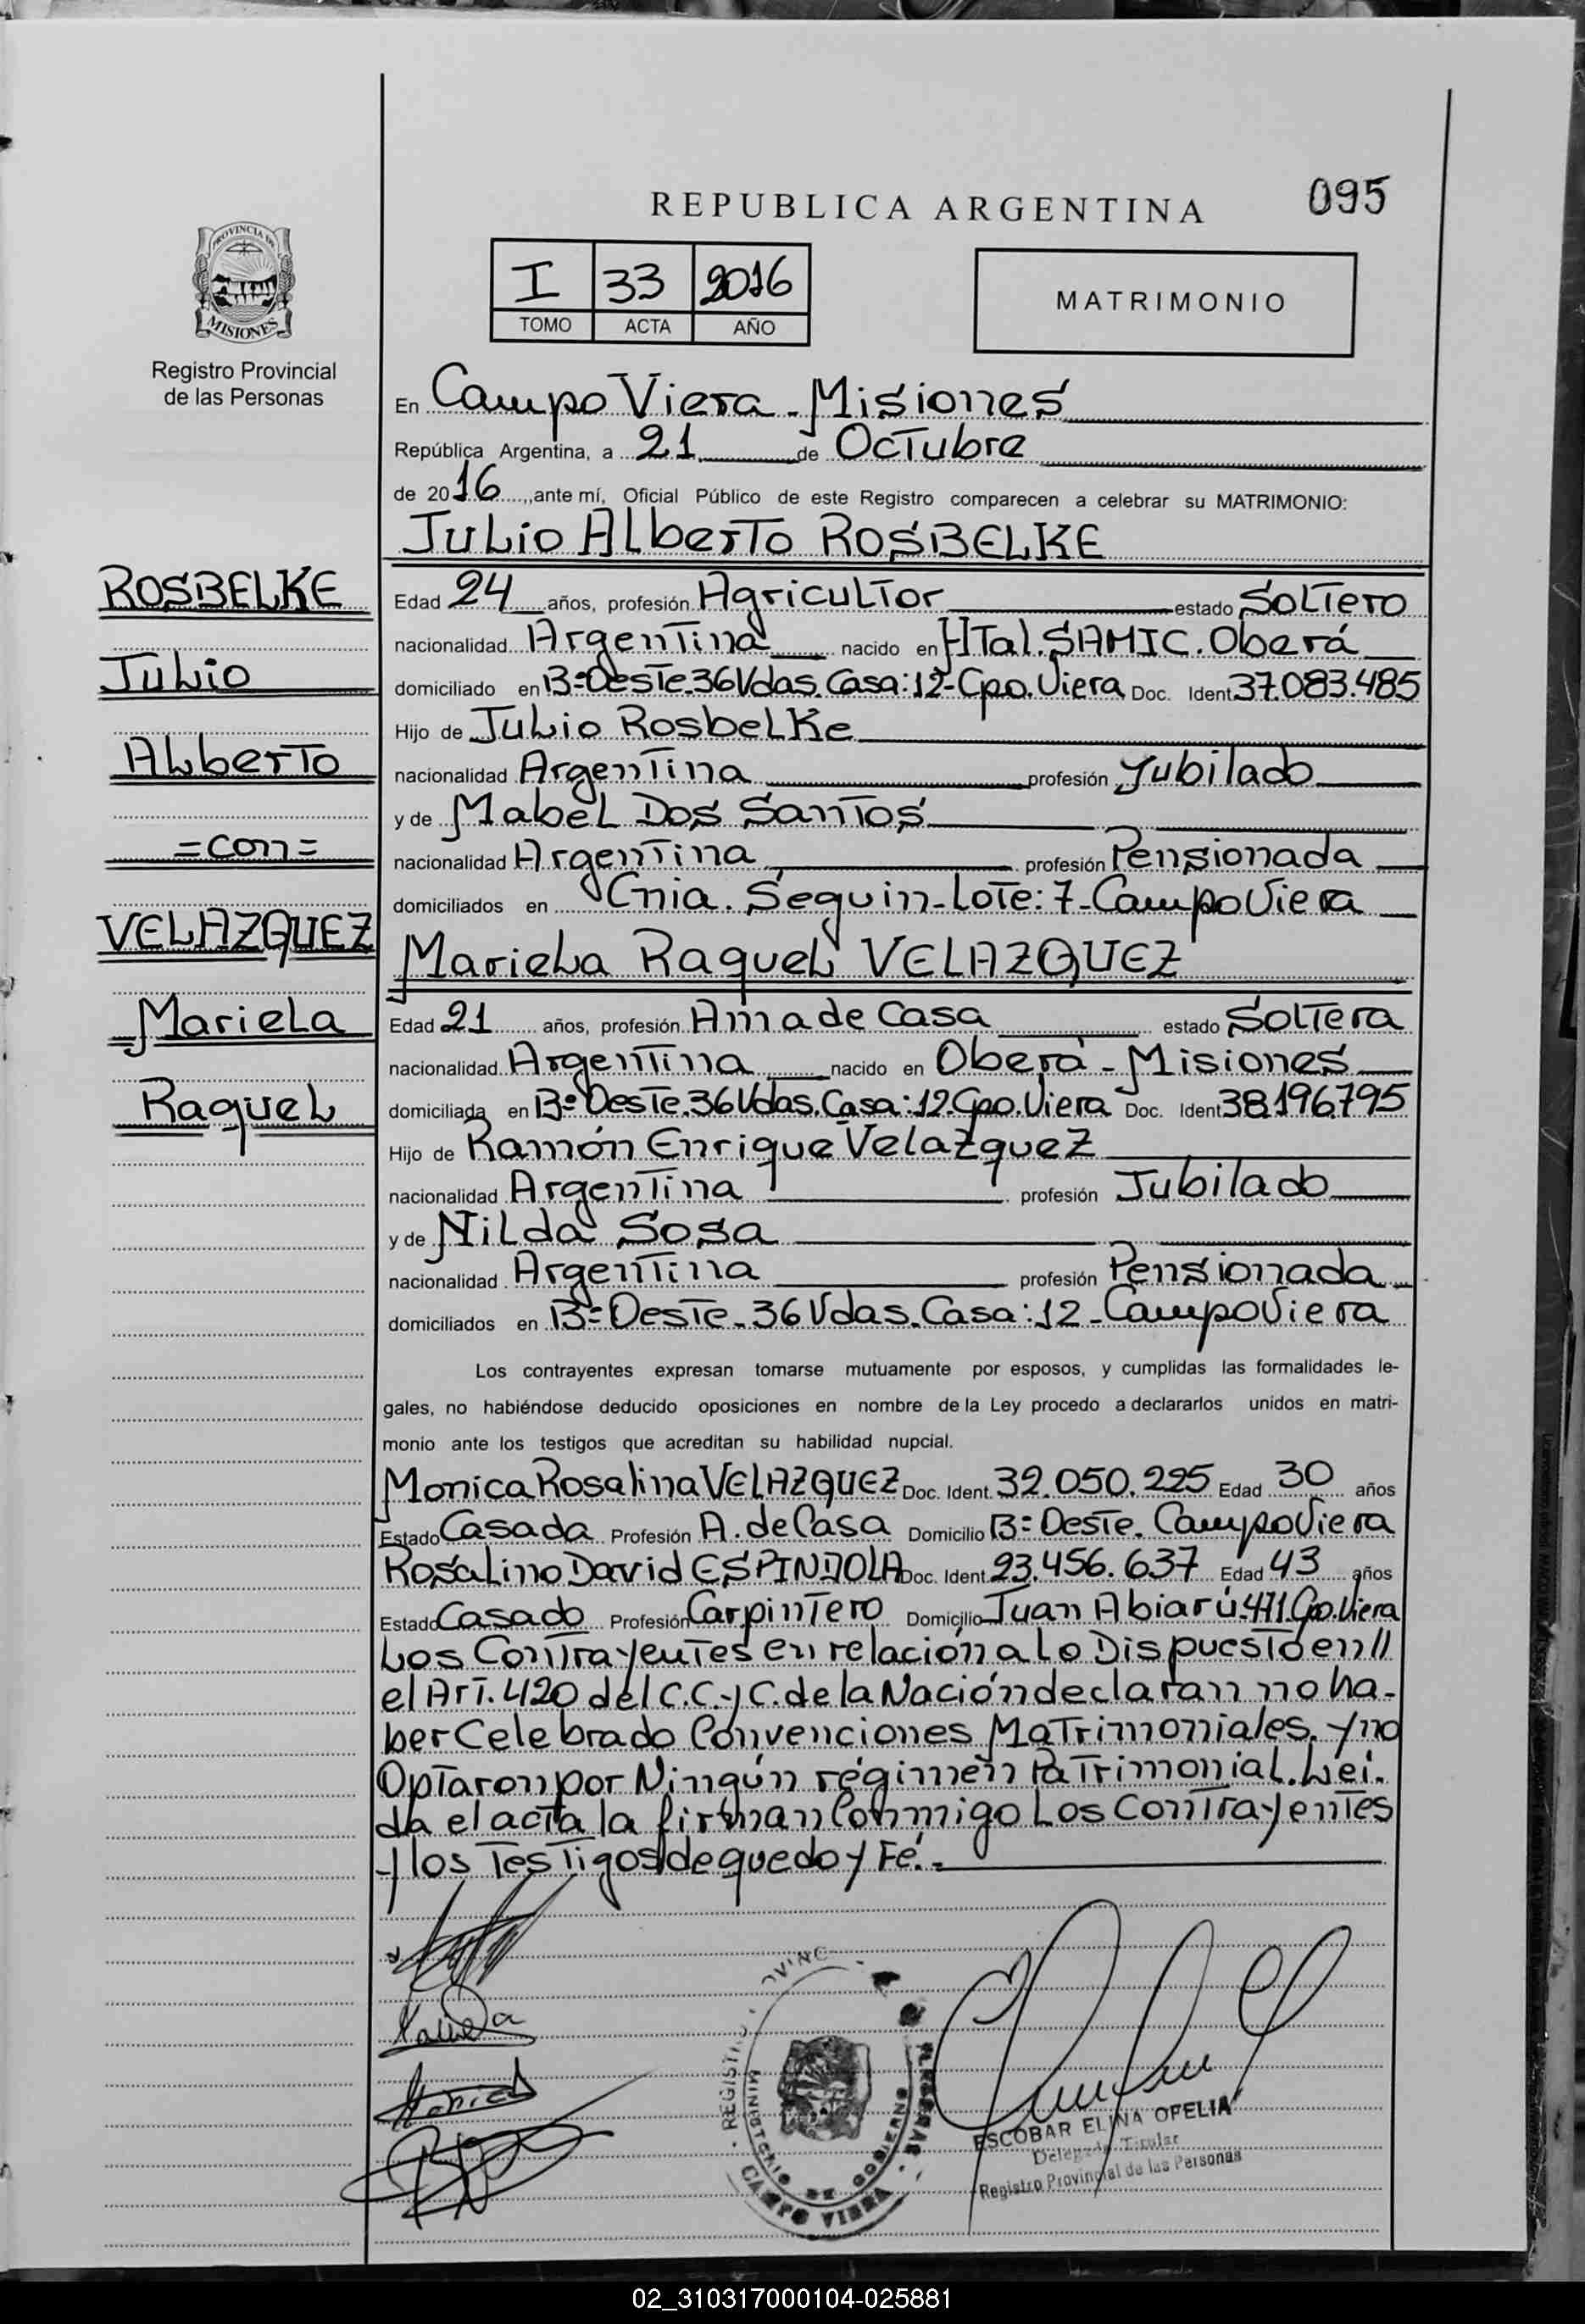 REPUBLICA ARGENTINA
095
PROVINCIA DE
MISIONES
Registro Provincial
de las Personas
I 33 2016
TOMO ACTA AÑO
MATRIMONIO
En Campo Viera - Misiones
República Argentina, a 21 de Octubre
de 2016, ante mí, Oficial Público de este Registro comparecen a celebrar su MATRIMONIO:
Julio Alberto ROSBELKE
ROSBELKE
Julio
Alberto
= con =
VELAZQUEZ
Mariela
Raquel
Edad 24 años, profesión Agricultor estado Soltero
nacionalidad Argentina nacido en HTal. SAMIC. Oberá
domiciliado en B° Oeste. 36 Vdas. Casa: 12 - Cpo. Viera Doc. Ident 37.083.485
Hijo de Julio Rosbelke
nacionalidad Argentina profesión Jubilado
y de Mabel Dos Santos
nacionalidad Argentina profesión Pensionada
domiciliados en Cnia. Seguin - Lote: 7 - Campo Viera
Mariela Raquel VELAZQUEZ
Edad 21 años, profesión Ama de Casa estado Soltera
nacionalidad Argentina nacido en Oberá - Misiones
domiciliada en B° Oeste. 36 Vdas. Casa: 12. Cpo. Viera Doc. Ident 38.196.795
Hijo de Ramón Enrique Velazquez
nacionalidad Argentina profesión Jubilado
y de Nilda Sosa
nacionalidad Argentina profesión Pensionada
domiciliados en B° Oeste - 36 Vdas. Casa: 12 - Campo Viera
Los contrayentes expresan tomarse mutuamente por esposos, y cumplidas las formalidades le-
gales, no habiéndose deducido oposiciones en nombre de la Ley procedo a declararlos unidos en matri-
monio ante los testigos que acreditan su habilidad nupcial.
Monica Rosalina VELAZQUEZ Doc. Ident. 32.050.225 Edad 30 años
Estado Casada Profesión A. de Casa Domicilio B° Oeste. Campo Viera
Rosalino David ESPINDOLA Doc. Ident. 23.456.637 Edad 43 años
Estado Casado Profesión Carpintero Domicilio Juan Abiarú 471. Cpo. Viera
Los Contrayentes en relación a Lo Dispuesto en //
el Art. 420 del C.C. y C. de la Nación declaran no ha-
ber Celebrado Convenciones Matrimoniales, y no
Optaron por Ningún régimen Patrimonial. Leí-
da el acta la firman Conmigo Los Contrayentes
y los Testigos de que doy Fé.-
Mariela
Monica
REGISTRO
MINISTERIO DE GOBIERNO
CAMPO VIERA
ESCOBAR ELINA OFELIA
Delegada Titular
Registro Provincial de las Personas
02_310317000104-025881